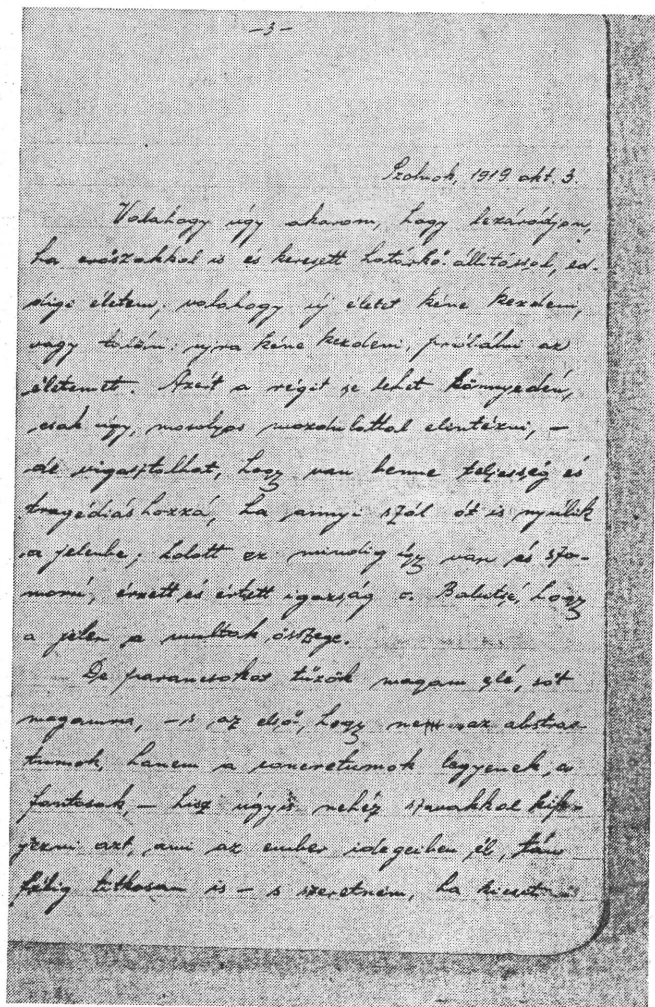 -3-
Szolnok, 1919 okt. 3.
Valahogy úgy akarom, hogy lezáródjon,
ha erőszakkal is és keresett határkő-állítással, ed-
digi életem; valahogy új életet kéne kezdeni,
vagy talán: ujra kéne kezdeni, próbálni az
életemet. Azért a régit se lehet könnyedén,
csak úgy, mosolyos mozdulattal elintézni, –
de vigasztalhat, hogy van benne teljesség és
tragédiás hozzá, ha annyi szál át is nyúlik
a jelenbe; holott ez mindig így van és szo-
morú, érzett és értett igazság a hogy
a jelen a multak összege.
De parancsokat tűzök magam elé, sőt
magamra, – s az első, hogy nem az abstrac-
tumok, hanem a concretumok legyenek a
fontosak, – hisz úgyis nehéz szavakkal kife-
jezni azt, ami az ember idegeiben él, tán
félig titkosan is – s szeretném, ha